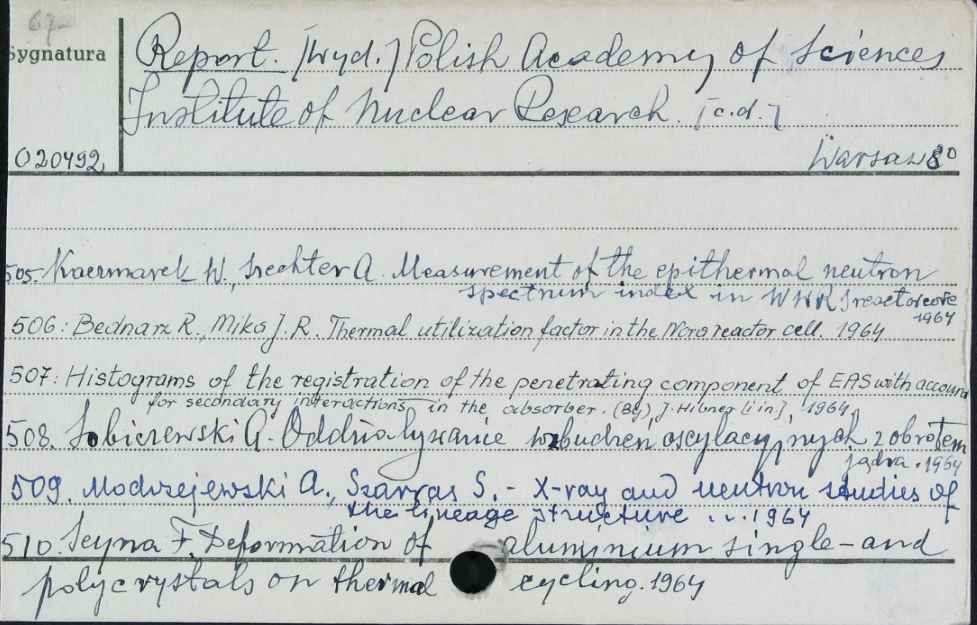 67-
Sygnatura
Report. [Wyd.] Polish Academy of Sciences
Institute of Nuclear Research. [c.d.]
O20492
Warsaw 8º
505. Kaczmarek W., Szechter A. Measurement of the epithermal neutron
spectrum index in WWRS reactor core
1964
506: Bednarz R., Mika J.R. Thermal utilization factor in the Nora reactor cell. 1964
507: Histograms of the registration of the penetrating component of EAS with account
for secondary interactions in the absorber. (By) J. Hibner [i in], 1964.
508. Sobiczewski A. Oddziaływanie wzbudzeń oscylacyjnych z obrotem
jądra. 1964
509. Modrzejewski A., Szarras S. - X-ray and neutron studies of
the lineage structure ... 1964
510. Seyna F. Deformation of aluminium single-and
polycrystals on thermal cycling. 1964